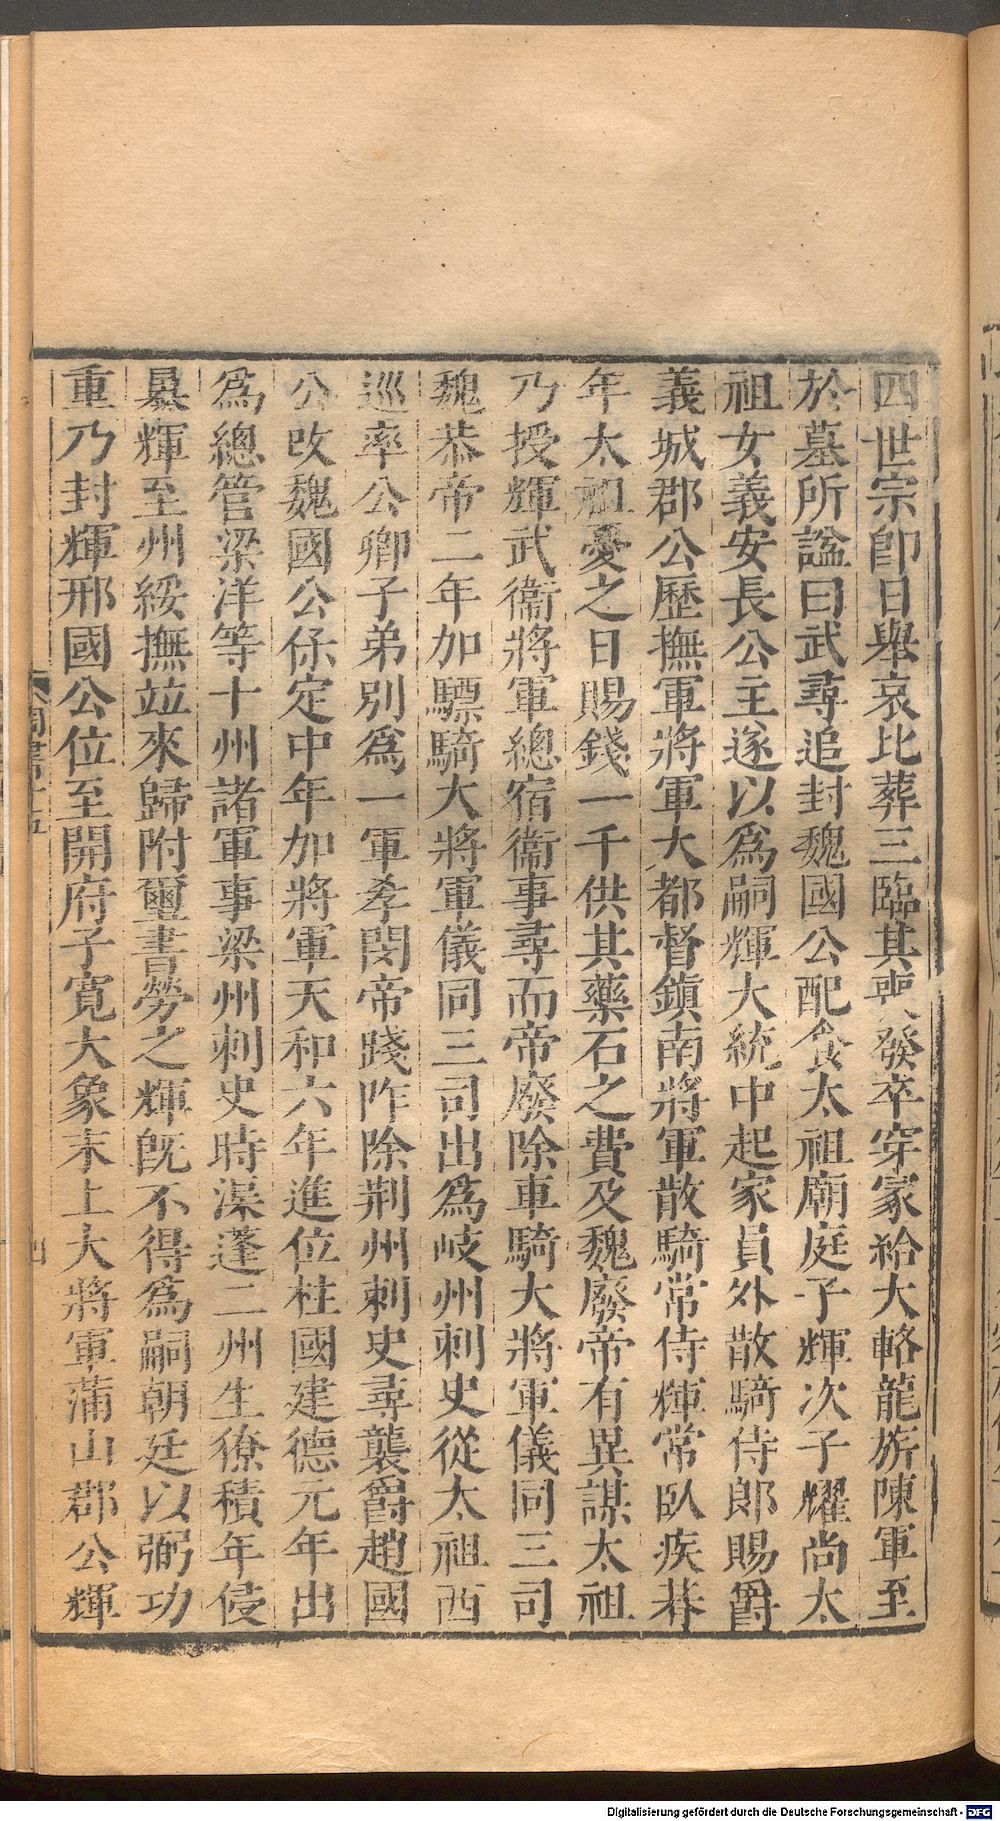 四世宗卽日舉哀比葬三臨其喪發卒穿冢給大輅龍旂陳軍至
於墓所諡曰武尋追封魏國公配食太祖廟庭子輝次子耀尚太
祖女義安長公主遂以爲嗣輝大統中起家員外散騎侍郎賜爵
義城郡公歷撫軍將軍大都督鎭南將軍散騎常侍輝常臥疾朞
年太祖憂之日賜錢一千供其藥石之費及魏廢帝有異謀太祖
乃授輝武衞將軍總宿衞事尋而帝廢除車騎大將軍儀同三司
魏恭帝二年加驃騎大將軍儀同三司出爲岐州刺史從太祖西
巡率公卿子弟別爲一軍孝閔帝踐阼除荆州刺史尋襲爵趙國
公改魏國公保定中年加將軍天和六年進位柱國建德元年出
爲總管梁洋等十州諸軍事梁州刺史時渠蓬二州生獠積年侵
暴輝至州綏撫竝來歸附璽書勞之輝旣不得爲嗣朝廷以弼功
重乃封輝邢國公位至開府子寛大象末上大將軍蒲山郡公輝
周書十五
四
Digitalisierung gefördert durch die Deutsche Forschungsgemeinschaft - DFG